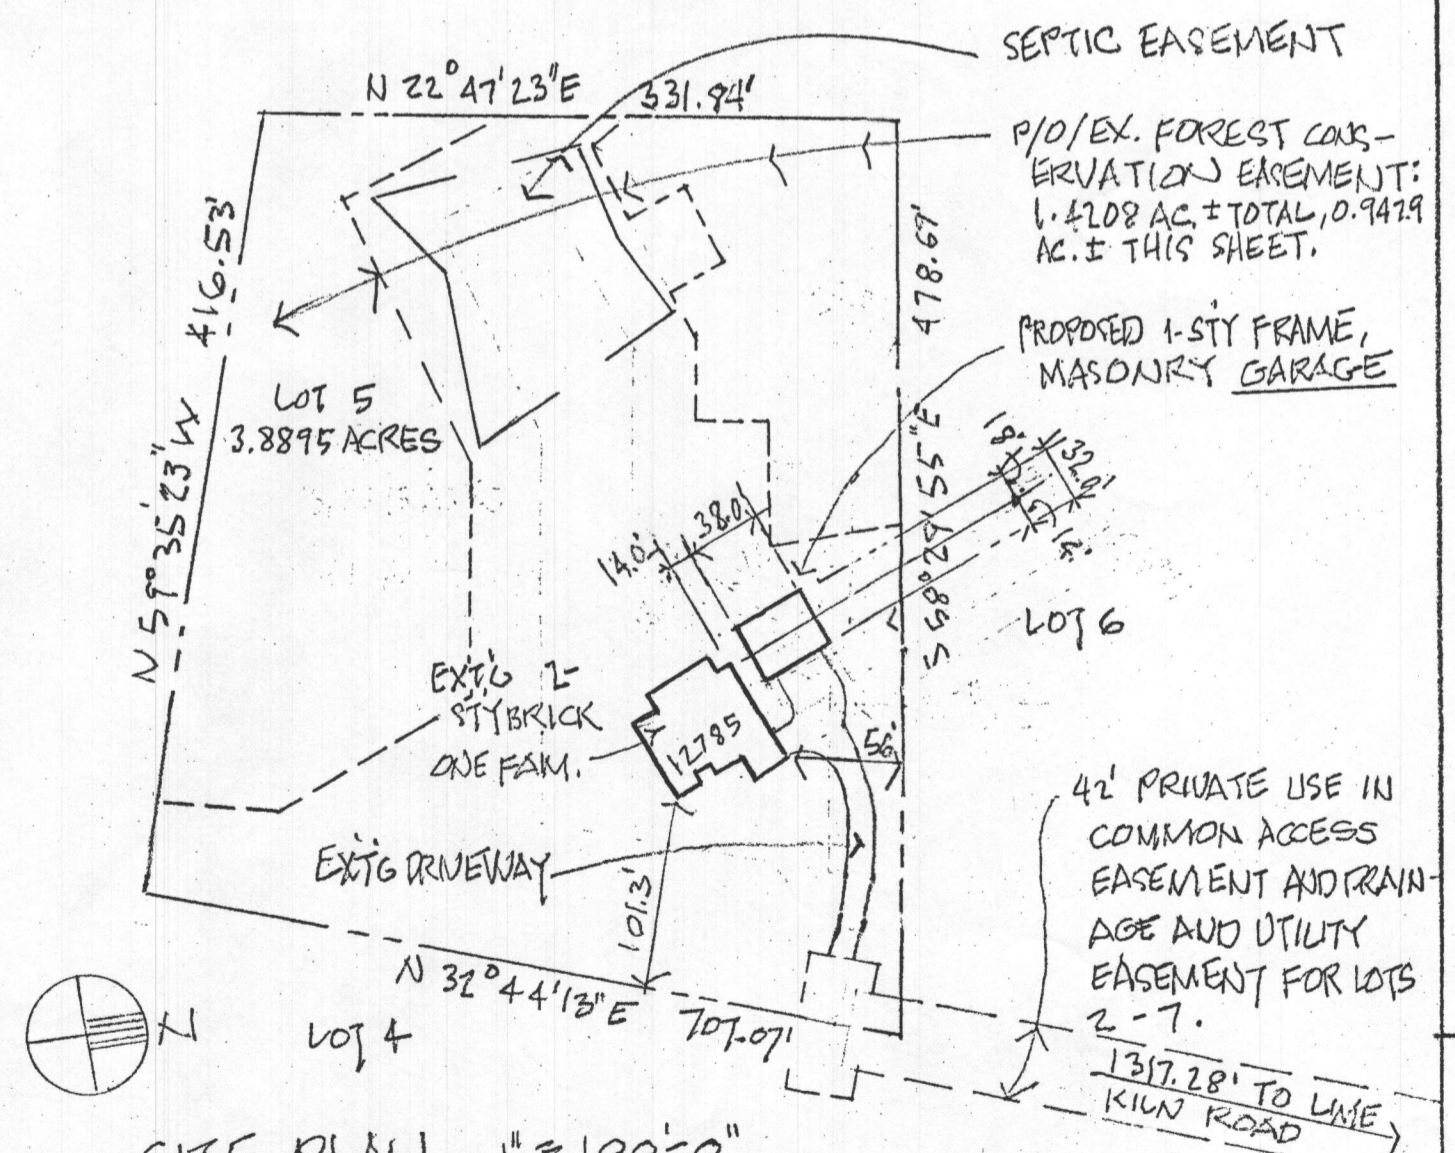 SEPTIC EASEMENT
N 22° 47' 23" E 331.84'
P/O/EX. FOREST CONS-
ERVATION EASEMENT:
1.4208 AC. ± TOTAL, 0.9429
AC. ± THIS SHEET.
N 59° 35' 23" W 416.53'
478.67'
S 58° 29' 55" E
PROPOSED 1-STY FRAME,
MASONRY GARAGE
LOT 5
3.8895 ACRES
18' 32.0'
14.0' 38.0'
LOT 6
EXT'G 2-
STY BRICK
ONE FAM.
12785
56'
42' PRIVATE USE IN
COMMON ACCESS
EASEMENT AND DRAIN-
AGE AND UTILITY
EASEMENT FOR LOTS
2-7.
EXT'G DRIVEWAY
101.3'
N 32° 44' 13" E 707.07'
N
LOT 4
1317.28' TO LIME
KILN ROAD
SITE PLAN 1" = 100'-0"